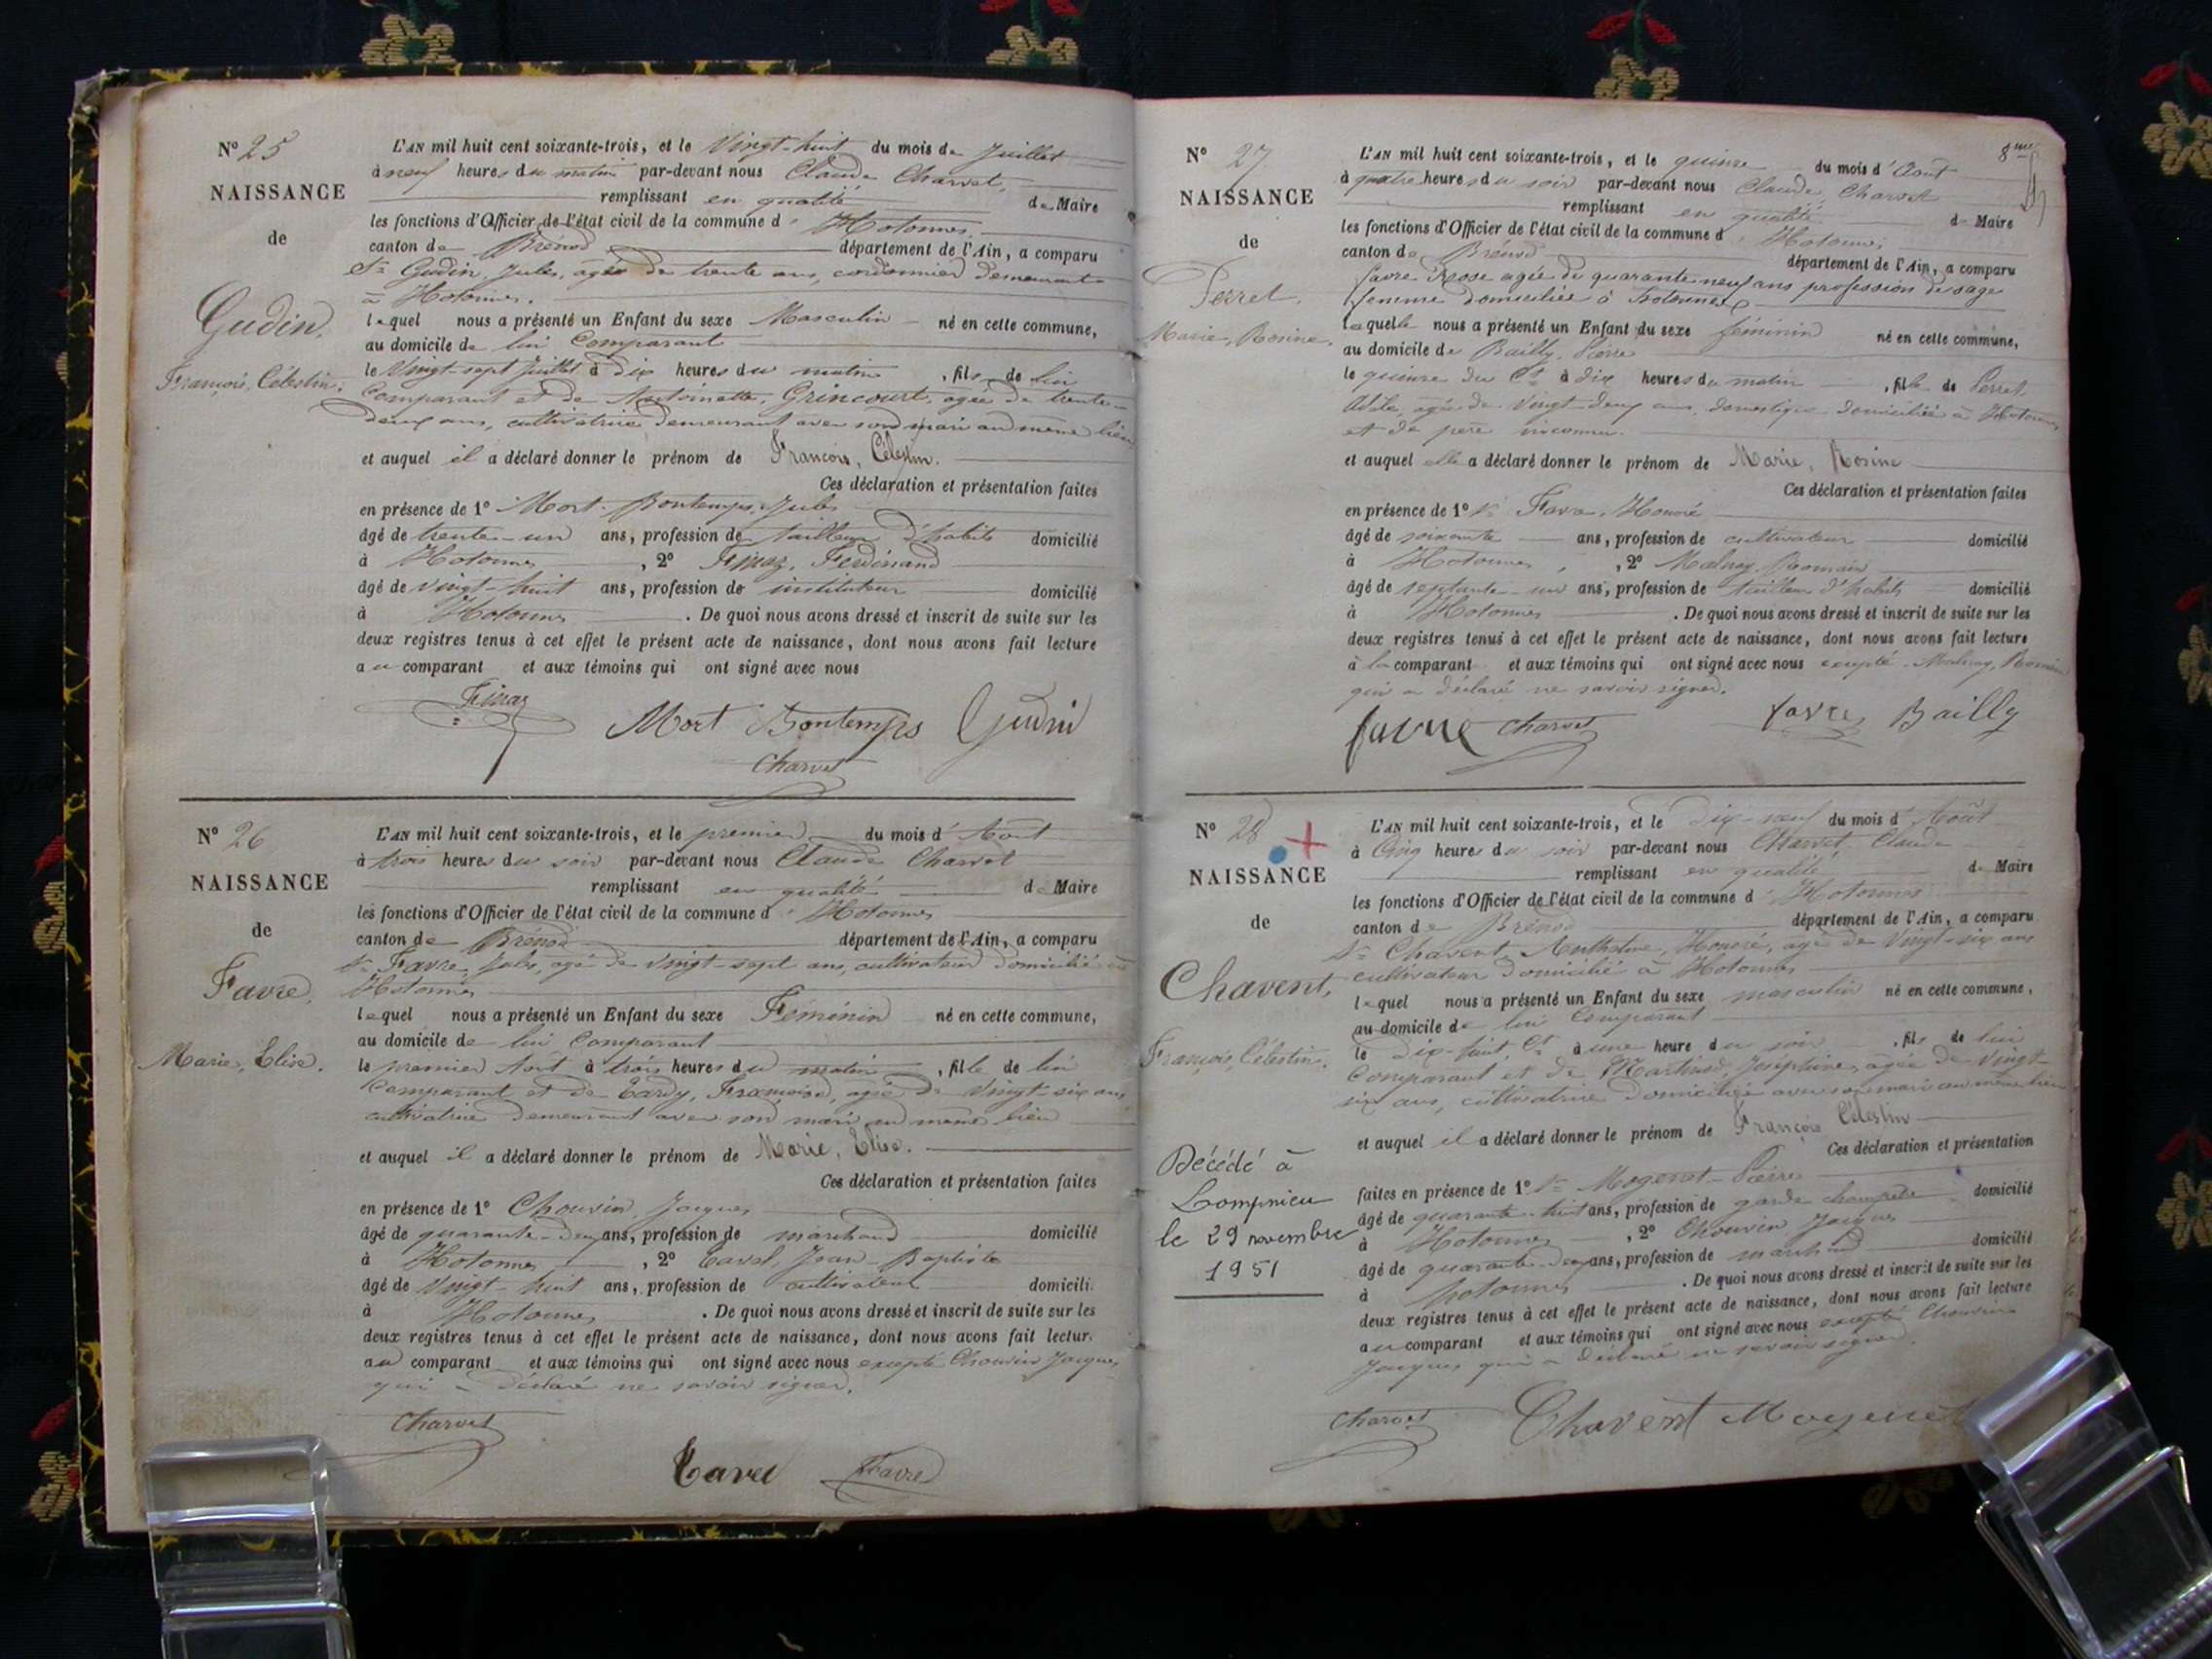 N° 25
NAISSANCE
de
Gudin,
François, Célestin.
L'AN mil huit cent soixante-trois, et le Vingt-huit du mois de Juillet
à neuf heures du matin par-devant nous Claude Charvet,
remplissant en qualité de Maire
les fonctions d'Officier de l'état civil de la commune d' Hotonnes,
canton de Brénod département de l'Ain, a comparu
Sr Gudin, Jules, agé de trente ans, cordonnier demeurant
à Hotonnes.
lequel nous a présenté un Enfant du sexe Masculin né en cette commune,
au domicile de lui Comparant
le Vingt-sept Juillet à dix heures du matin, fils de lui
Comparant et de Antoinette, Grincourt, agée de trente-
deux ans, cultivatrice demeurant avec son mari au même lieu
et auquel il a déclaré donner le prénom de François, Célestin.
Ces déclaration et présentation faites
en présence de 1° Mort-Bontemps, Jules
âgé de trente-un ans, profession de tailleur d'habits domicilié
à Hotonnes, 2° Finaz, Ferdinand
âgé de vingt-huit ans, profession de instituteur domicilié
à Hotonnes. De quoi nous avons dressé et inscrit de suite sur les
deux registres tenus à cet effet le présent acte de naissance, dont nous avons fait lecture
au comparant et aux témoins qui ont signé avec nous
Finaz Mort Bontemps Gudin
Charvet
N° 26
NAISSANCE
de
Favre,
Marie, Elise.
L'AN mil huit cent soixante-trois, et le premier du mois d' Août
à trois heures du soir par-devant nous Claude Charvet
remplissant en qualité de Maire
les fonctions d'Officier de l'état civil de la commune d' Hotonnes
canton de Brénod département de l'Ain, a comparu
Sr Favre, Jules, agé de vingt-sept ans, cultivateur domicilié à
Hotonnes
lequel nous a présenté un Enfant du sexe Féminin né en cette commune,
au domicile de lui Comparant
le premier Août à trois heures du matin, fille de lui
Comparant et de Tardy, Françoise, agée de vingt-six ans
cultivatrice demeurant avec son mari au même lieu
et auquel il a déclaré donner le prénom de Marie, Elise.
Ces déclaration et présentation faites
en présence de 1° Chouvin, Jacques
âgé de quarante-deux ans, profession de marchand domicilié
à Hotonnes, 2° Tavel, Jean-Baptiste
âgé de vingt-huit ans, profession de cultivateur domicili.
à Hotonnes. De quoi nous avons dressé et inscrit de suite sur les
deux registres tenus à cet effet le présent acte de naissance, dont nous avons fait lectur.
au comparant et aux témoins qui ont signé avec nous excepté Chouvin Jacques
qui a déclaré ne savoir signer.
Charvet
Tavel Favre
8me
N° 27
NAISSANCE
de
Perret,
Marie, Rosine.
L'AN mil huit cent soixante-trois, et le quinze du mois d' Août
à quatre heures du soir par-devant nous Claude, Charvet
remplissant en qualité de Maire
les fonctions d'Officier de l'état civil de la commune d' Hotonnes
canton de Brénod département de l'Ain, a comparu
favre Rose agée de quarante neuf ans profession de sage
femme domiciliée à hotonnes
laquelle nous a présenté un Enfant du sexe féminin né en cette commune,
au domicile de Bailly, Pierre
le quinze du Ct à dix heures du matin, fille de Perret,
Adèle, agée de vingt-deux ans, domestique domiciliée à Hotonnes
et de père inconnu.
et auquel elle a déclaré donner le prénom de Marie, Rosine
Ces déclaration et présentation faites
en présence de 1° Sr Favre, Honoré
âgé de soixante ans, profession de cultivateur domicilié
à Hotonnes, 2° Malnay, Romain
âgé de septante-un ans, profession de tailleur d'habits domicilié
à Hotonnes. De quoi nous avons dressé et inscrit de suite sur les
deux registres tenus à cet effet le présent acte de naissance, dont nous avons fait lecture
à la comparant et aux témoins qui ont signé avec nous excepté Malnay, Romain
qui a déclaré ne savoir signer.
favre Charvet favre Bailly
N° 28
NAISSANCE
de
Chavent,
François, Célestin.
Décédé à
Lompnieu
le 29 novembre
1951
L'AN mil huit cent soixante-trois, et le Dix-neuf du mois d' Août
à Cinq heures du soir par-devant nous Charvet, Claude
remplissant en qualité de Maire
les fonctions d'Officier de l'état civil de la commune d' Hotonnes
canton de Brénod département de l'Ain, a comparu
Sr Chavent, Anthelme, Honoré, agé de vingt-six ans
cultivateur domicilié à Hotonnes
lequel nous a présenté un Enfant du sexe masculin né en cette commune,
au domicile de lui Comparant
le dix-huit Ct à une heure du soir, fils de lui
Comparant et de Martinod, Joséphine, agée de vingt-
six ans, cultivatrice domiciliée avec son mari au même lieu
et auquel il a déclaré donner le prénom de François Célestin
Ces déclaration et présentation
faites en présence de 1° Sr Mogenet-Pierre
âgé de quarante-huit ans, profession de garde champêtre domicilié
à Hotonnes, 2° Chouvin Jacques
âgé de quarante-deux ans, profession de marchand domicilié
à hotonnes. De quoi nous avons dressé et inscrit de suite sur les
deux registres tenus à cet effet le présent acte de naissance, dont nous avons fait lecture
au comparant et aux témoins qui ont signé avec nous excepté Chouvin
Jacques qui a déclaré ne savoir signer.
Charvet Chavent Mogenet